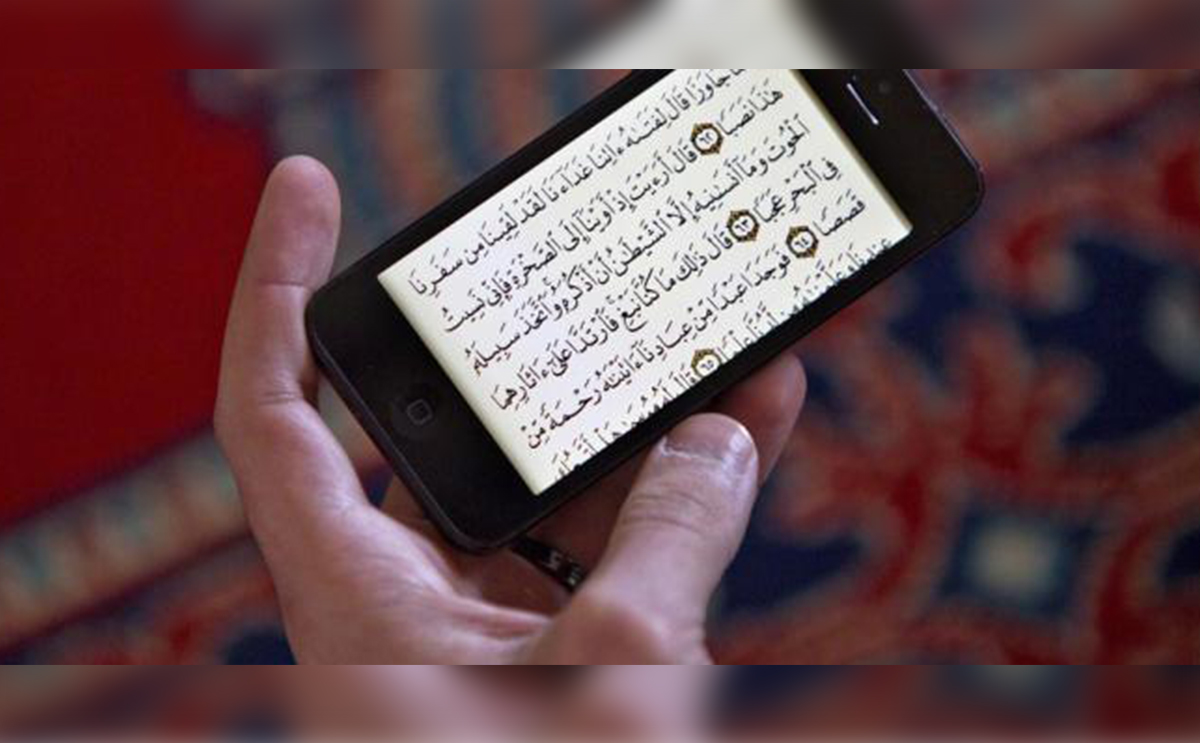 جَاوَزَا قَالَ لِفَتَىٰهُ ءَاتِنَا غَدَآءَنَا لَقَدْ لَقِينَا مِن سَفَرِنَا
هَٰذَا نَصَبًا ٦٢ قَالَ أَرَءَيْتَ إِذْ أَوَيْنَآ إِلَى ٱلصَّخْرَةِ فَإِنِّى نَسِيتُ
ٱلْحُوتَ وَمَآ أَنسَىٰنِيهُ إِلَّا ٱلشَّيْطَٰنُ أَنْ أَذْكُرَهُۥ وَٱتَّخَذَ سَبِيلَهُۥ
فِى ٱلْبَحْرِ عَجَبًا ٦٣ قَالَ ذَٰلِكَ مَا كُنَّا نَبْغِ فَٱرْتَدَّا عَلَىٰٓ ءَاثَارِهِمَا
قَصَصًا ٦٤ فَوَجَدَا عَبْدًا مِّنْ عِبَادِنَآ ءَاتَيْنَٰهُ رَحْمَةً مِّنْ
٦٥ قَالَ